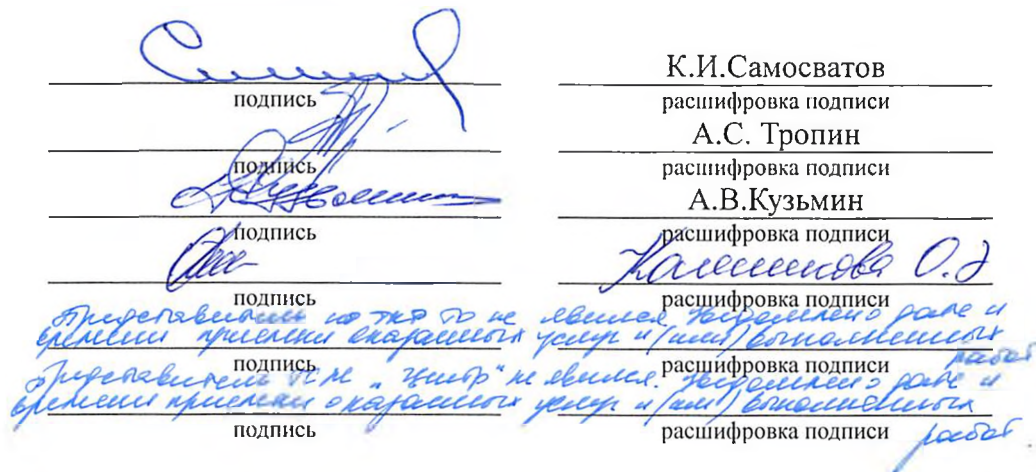 К.И.Самосватов
подпись расшифровка подписи
А.С. Тропин
подпись расшифровка подписи
А.В.Кузьмин
подпись расшифровка подписи
О.
подпись расшифровка подписи
Представитель не явился. Уведомлено дате и
времени приемки оказанных услуг и (или) выполненных
работ
подпись расшифровка подписи
Представитель "Центр" не явился. Уведомлено дате и
времени приемки оказанных услуг и (или) выполненных
работ.
подпись расшифровка подписи